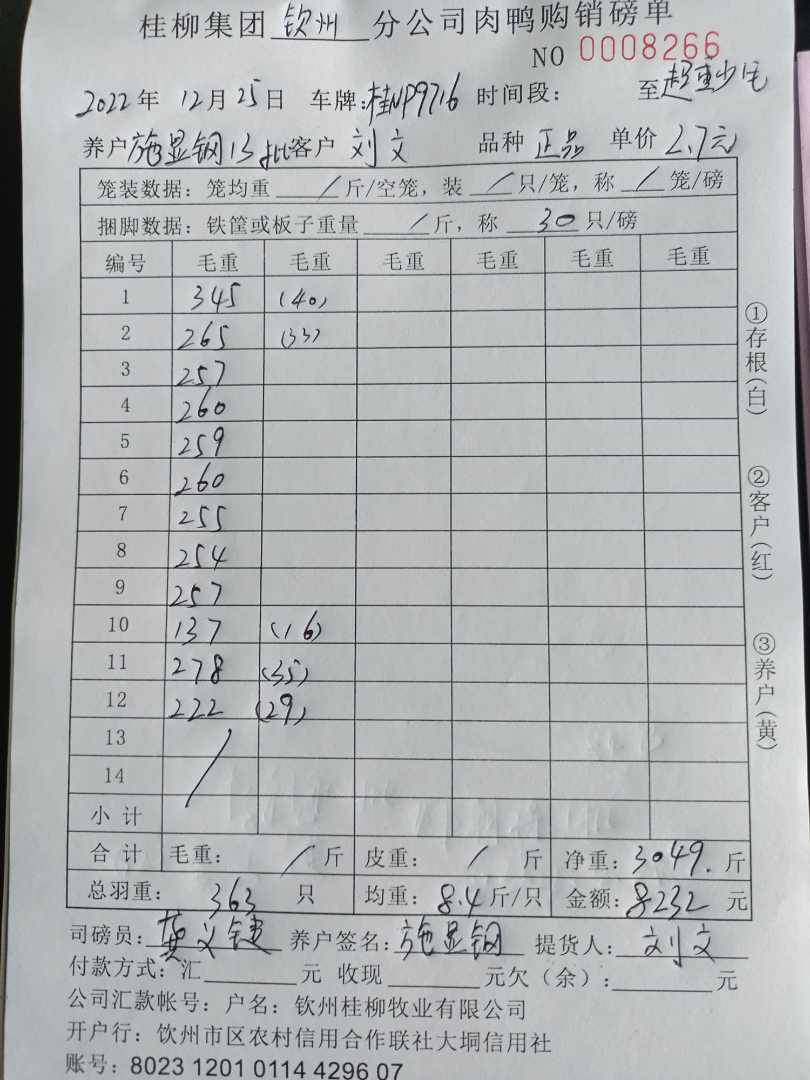 桂柳集团 钦州 分公司肉鸭购销磅单
NO 0008266
2022年 12月25日 车牌:桂NP9716 时间段: 至超重少毛
养户施显钢13批客户 刘文 品种 正品 单价 2.7元
笼装数据: 笼均重 / 斤/空笼, 装 / 只/笼, 称 / 笼/磅
捆脚数据: 铁筐或板子重量 / 斤, 称 30 只/磅
编号 毛重 毛重 毛重 毛重 毛重 毛重
1 345 (40)
2 265 (33)
3 257
4 260
5 259
6 260
7 255
8 254
9 257
10 137 (16)
11 278 (35)
12 222 (29)
13 /
14
小计
合计 毛重: / 斤 皮重: / 斤 净重: 3049. 斤
总羽重: 363 只 均重: 8.4 斤/只 金额: 8232 元
司磅员: 龚义键 养户签名: 施显钢 提货人: 刘文
付款方式: 汇 元 收现 元欠(余): 元
公司汇款帐号: 户名: 钦州桂柳牧业有限公司
开户行: 钦州市区农村信用合作联社大垌信用社
账号: 8023 1201 0114 4296 07
①存根(白)
②客户(红)
③养户(黄)